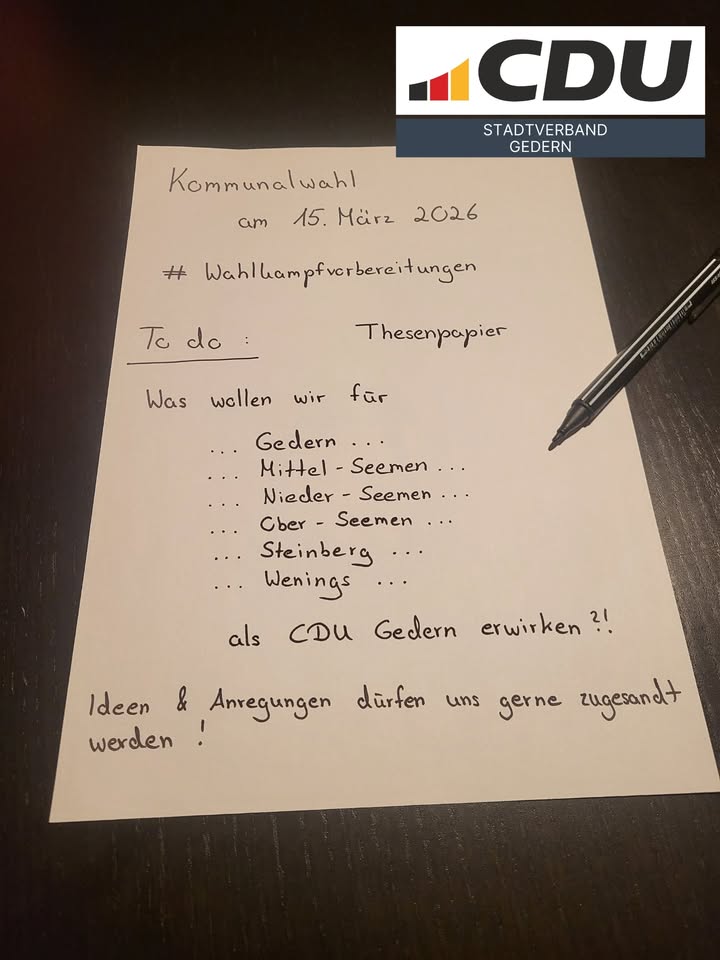 CDU
STADTVERBAND
GEDERN
Kommunalwahl
am 15. März 2026
# Wahlkampfvorbereitungen
To do : Thesenpapier
Was wollen wir für
... Gedern ...
... Mittel - Seemen ...
... Nieder - Seemen ...
... Ober - Seemen ...
... Steinberg ...
... Wenings ...
als CDU Gedern erwirken ?!
Ideen & Anregungen dürfen uns gerne zugesandt
werden !